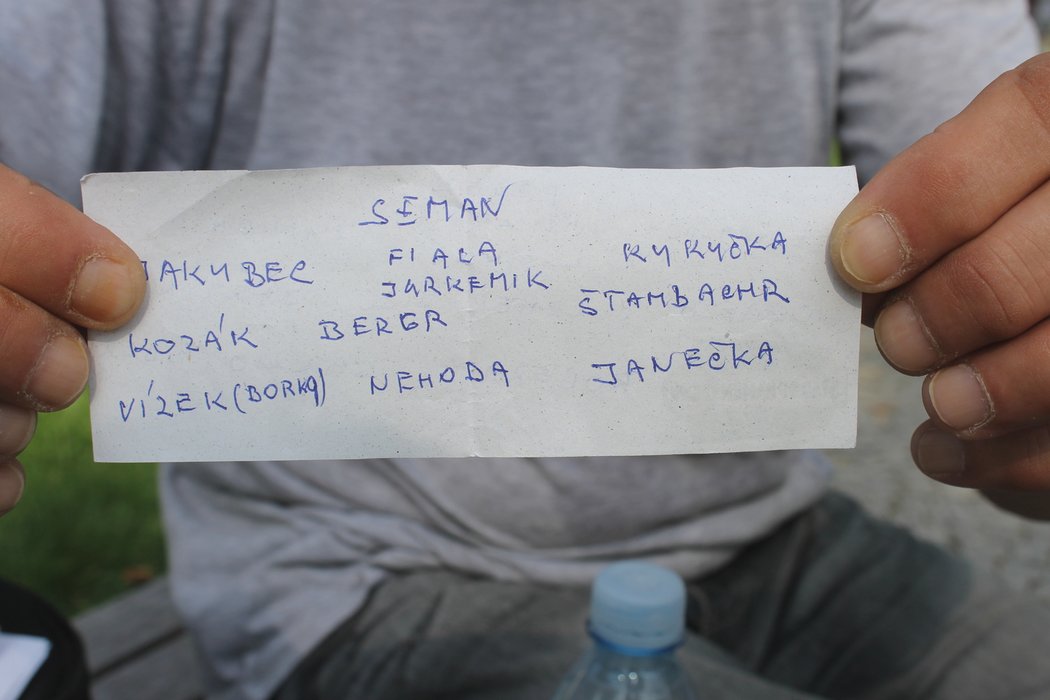 SEMAN
JAKUBEC FIALA KUKUČKA
JURKEMIK ŠTAMBACHR
KOZÁK BERGR
VÍZEK (BORKA) NEHODA JANEČKA